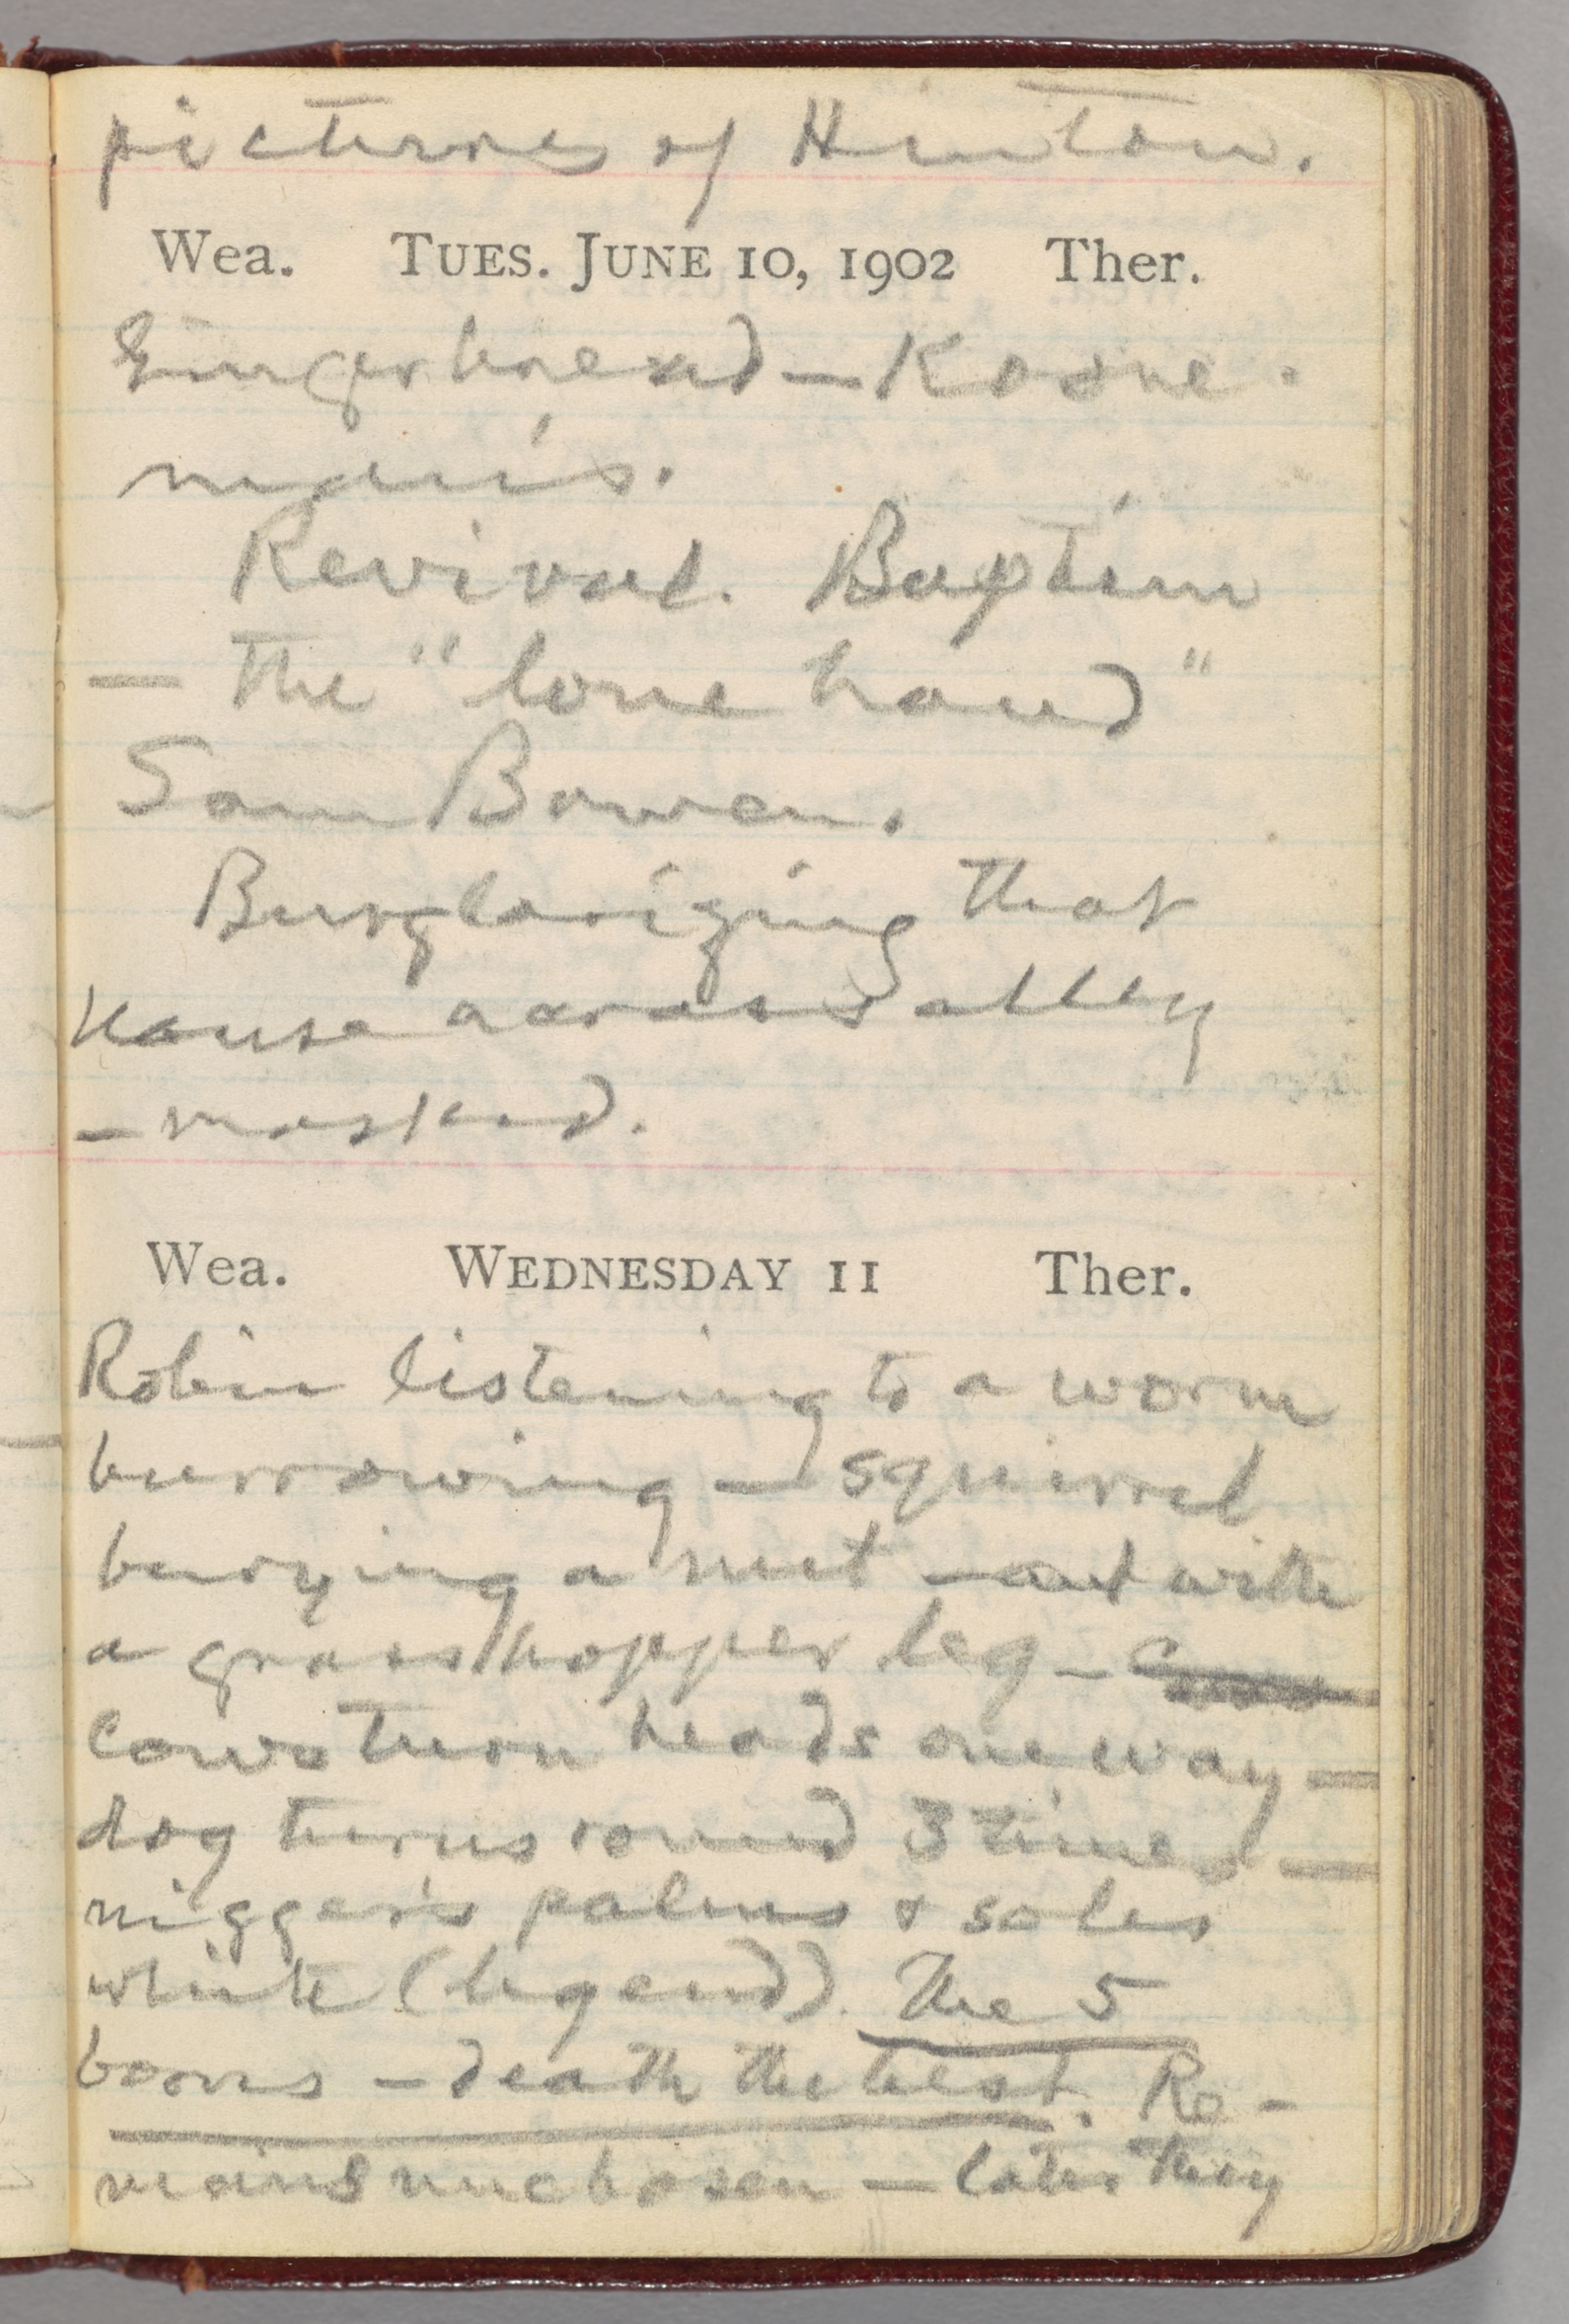 pictures of Hinton.
Wea. TUES. JUNE 10, 1902 Ther.
Gingerbread — Koone-
man's.
Revival. Baptism
— the "lone hand"
Sam Bowen.
Burglarizing that
house across alley
— masked.
Wea. WEDNESDAY 11 Ther.
Robin listening to a worm
burrowing — squirrel
burying a nut — ant with
a grasshopper leg —
Cows turn heads one way —
dog turns round 3 times —
nigger's palms & soles
white (legend). The 5
boons — death the best. Re-
mains unchosen — later they